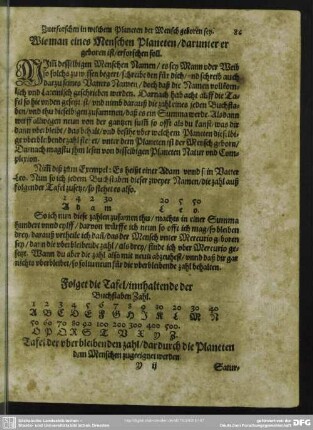 Zuerforschen in welchem Planeten der Mensch geboren sey. 82
Wie man eines Menschen Planeten / darunter er
geboren ist / erforschen soll.
desselbigen Menschen Namen / es sey Mann oder Weib
so solchs zu wissen begert / schreibe den für dich / und schreib auch
darzu seines Vatters Namen / doch daß die Namen vollkom-
lich und Lateinisch geschrieben werden. Darnach hab acht auff die Ta-
fel so hie unden gesetzt ist / und nimb darauß die zahl eines jeden Buchsta-
ben / und thu dieselbigen zusammen / daß es ein Summa werde. Als dann
wirff allwegen von der gantzen hin so offt als du kanst / was dir
dann uberbleibt / das behalt / und besihe under welchem Planeten dieselbi-
ge uberbleibende zahl stehet / unter dem Planeten ist der Mensch geborn /
Darnach magstu ihm lesen von desselbigen Planeten Natur und Com-
plexion.
Nun hab zum Exempel: Es heißt einer Adam und sein Vatter
Leo. Nun so ich jedem Buchstaben dieser zweyer Namen / die zahl auß
folgender Tafel zusetz / so stehet es also.
1 4 2 30 20 5 50
A d a m L e o
So ich nun diese zahlen zusamen thu / machts in einer Summa
hundert unnd / darvon würffe ich neun so offt ich mag / so bleiben
drey / darauß urtheile ich daß / daß der Mensch unter Mercurio geboren
sey / dann die uberbleibende zahl / als drey / finde ich uber Mercurio ge-
setzt. Wann du aber die zahl alle mit neun abzeuhest / unnd daß dir gar
nichts uberbleibet / so sol man neun für die uberbleibende zahl behalten.
Folget die Tafel / innhaltende der
Buchstaben Zahl.
1 2 3 4 5 6 7 8 9 10 20 30 40
A B C D E F G H I K L M N
50 60 70 80 90 100 200 300 400 500.
O P Q R S T V X Y Z.
Tafel der uberbleibenden zahl / dardurch die Planeten
dem Menschen zugeeignet werden
Satur-